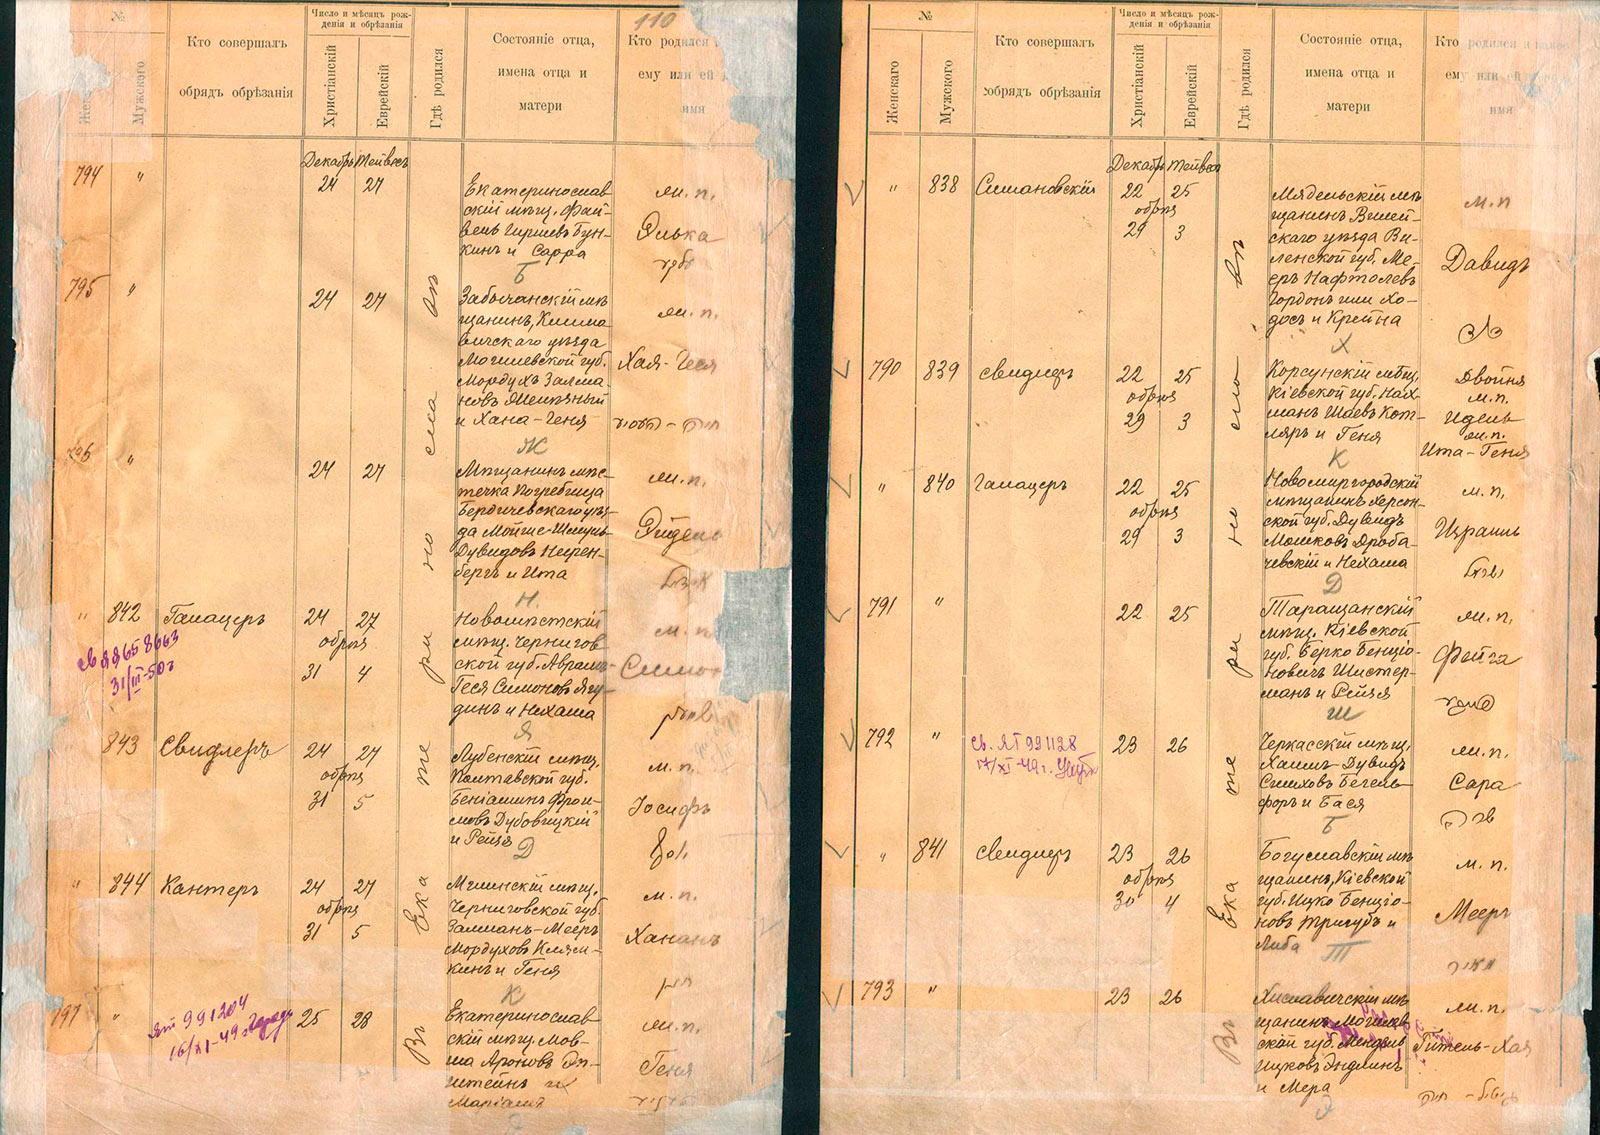 110
№
Женскаго
Мужского
Кто совершалъ
обрядъ обрѣзанія
Число и мѣсяцъ рож-
денія и обрѣзанія
Христіанскій
Еврейскій
Гдѣ родился
Состояніе отца,
имена отца и
матери
Кто родился
ему или ей
имя
Декабрь Тейвесъ
794 "
24 27
Екатеринослав
скій мѣщ. Фай-
вель Гиршевъ Бун-
кинъ и Сарра
м. п.
Элька
Б
795 "
24 27
щанинъ, Клима
вичскаго уѣзда
Могилевской губ.
Мордухъ Залма-
новъ
и Хана-Геня
м. п.
Хая-Геся
Ж
796 "
24 27
Мѣщанинъ мѣс-
течка Погребища
Бердичевскаго уѣз-
да Мойше-Шмуль
Дувидовъ Нирен-
бергъ и Ита
м. п.
Эйдель
Н.
" 842 Галацеръ
24 27
обрѣз
31 4
Новомѣстскій
мѣщ. Чернигов
ской губ. Авраамъ-
Геся Симоновъ Ягу-
динъ и Нехама
м. п.
Симон
31/III-50г
Я
843 Свидлеръ
24 27
обрѣз
31 5
Лубенскій мѣщ.
Полтавской губ.
Беніаминъ Фрои-
мовъ Дубовицкій
и Рейзя
м. п.
Іосифъ
Д
" 844 Кантеръ
24 27
обрѣз
31 5
Мглинскій мѣщ.
Черниговской губ.
Залманъ-Мееръ
Мордуховъ Клям-
кинъ и Геня
м. п.
Хананъ
К
797 "
ЯП 991204
16/XI-49
25 28
Екатеринослав
скій мѣщ. Мов-
ша Ароновъ Эп-
штейнъ и
Маріася
м. п.
Геня
Въ Екатеринославѣ
№
Женскаго
Мужского
Кто совершалъ
обрядъ обрѣзанія
Число и мѣсяцъ рож-
денія и обрѣзанія
Христіанскій
Еврейскій
Гдѣ родился
Состояніе отца,
имена отца и
матери
Кто родился и
ему или ей
имя
Декабрь Тейвесъ
" 838 Симановскій
22 25
обрѣз
29 3
Мядельскій мѣ
щанинъ Вилей-
скаго уѣзда Ви-
ленской губ. Ме-
еръ Нафтолевъ
Гордонъ или Хо-
досъ и Крейна
м. п
Давидъ
Х
790 839 Свидлеръ
22 25
обрѣз
29 3
Корсунскій мѣщ.
Кіевской губ. Нах-
манъ Шаевъ Кот-
ляръ и Геня
Двойня
м. п.
Идель
м. п.
Ита-Геня
К
" 840 Галацеръ
22 25
обрѣз
29 3
Новомиргородскій
мѣщанинъ Херсон-
ской губ. Дувидъ
Мошковъ Дроба-
чевскій и Нехама
м. п.
Израиль
Д
791 "
22 25
Таращанскій
мѣщ. Кіевской
губ. Берко Бенціо-
новичъ Шистер-
манъ и Рейзя
м. п.
Фейга
Ш
792 "
св. ЯГ 991128
17/XI-49 г.
23 26
Черкасскій мѣщ.
Хаимъ Дувидъ
Симховъ Бегель-
форъ и Бася
м. п.
Сара
Б
" 841 Свидлеръ
23 26
обрѣз
30 4
Богуславскій мѣ
щанинъ, Кіевской
губ. Ицко Бенціо-
новъ Тригубъ и
Либа
м. п.
Мееръ
Т
793 "
23 26
Хиславичскій мѣ
щанинъ Могилев
ской губ. Мендель
Ицковъ Эндлинъ
и Мера
м. п.
Гитель-Хая
Э
Въ Екатеринославѣ